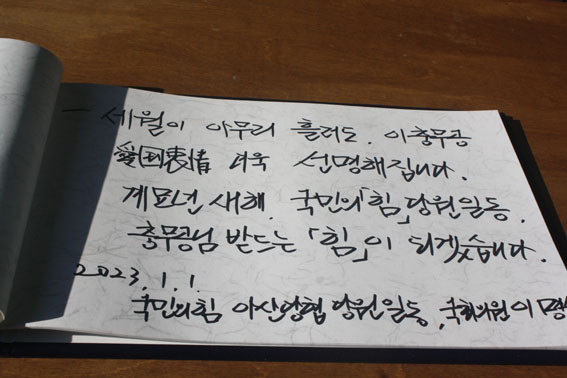 一 세월이 아무리 흘러도, 이충무공
愛国衷情 더욱 선명해집니다.
계묘년 새해, 국민의「힘」당원일동,
충무공님 받드는 「힘」이 되겠습니다.
2023. 1. 1.
국민의힘 아산당협 당원일동, 국회의원 이명